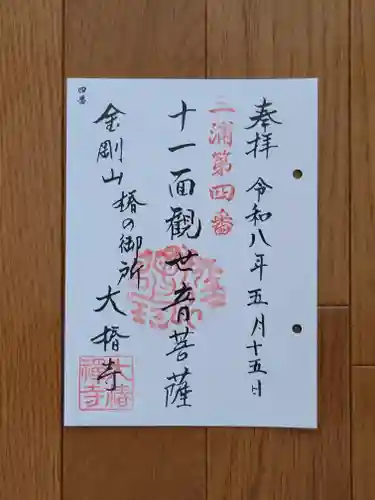 奉拝 令和八年五月十五日
三浦第四番
十一面観世音菩薩
金剛山 椿の御所 大椿寺
四番
大椿
禅寺